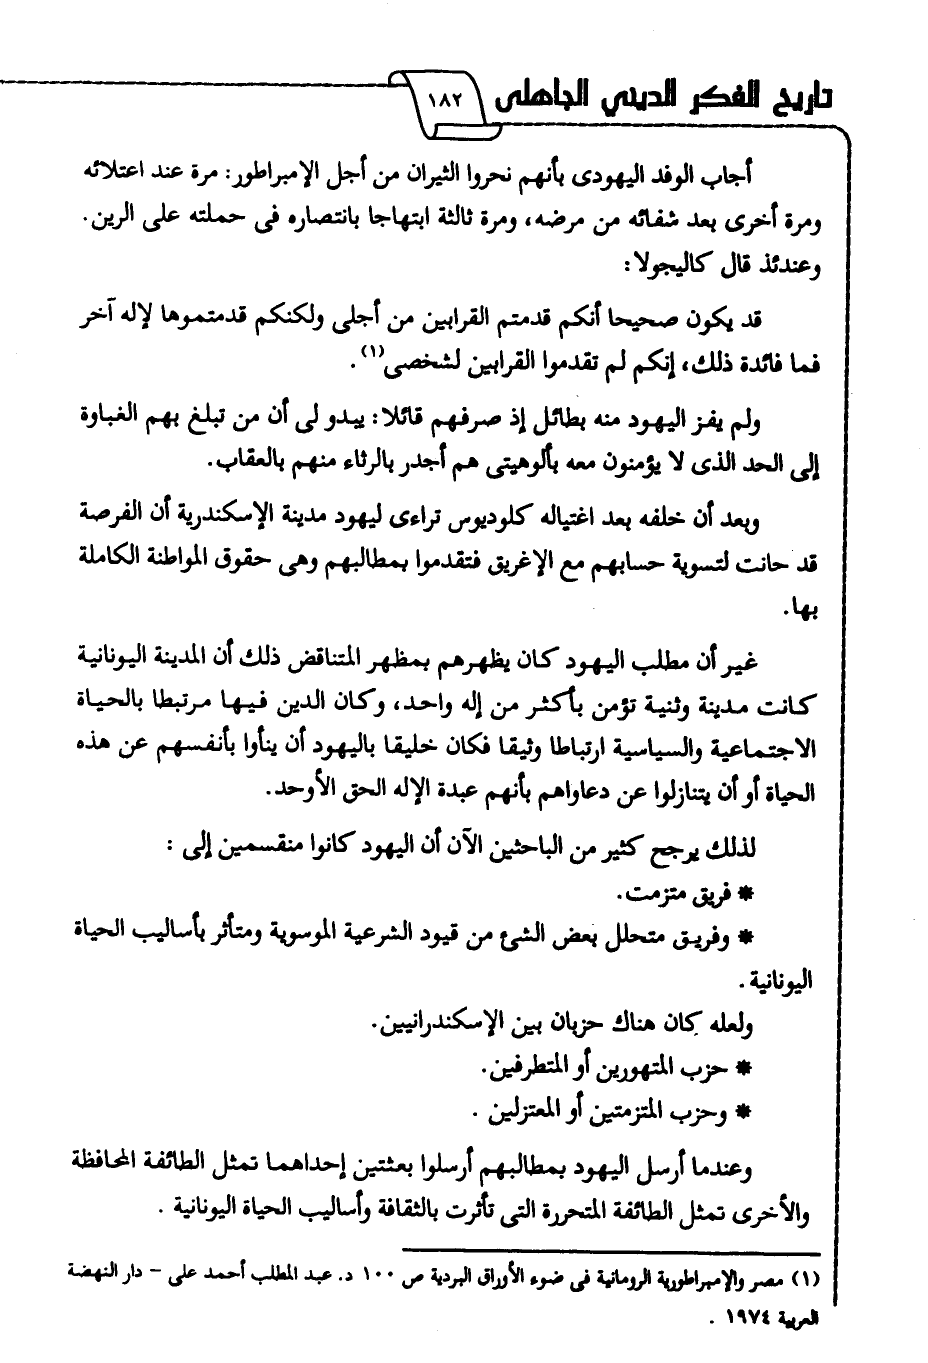 تاريخ الفكر الديني الجاهلى
١٨٢
أجاب الوفد اليهودى بأنهم نحروا الثيران من أجل الإمبراطور: مرة عند اعتلائه
ومرة أخرى بعد شفائه من مرضه، ومرة ثالثة ابتهاجا بانتصاره فى حملته على الرين.
وعندئذ قال كاليجولا:
قد يكون صحيحا أنكم قدمتم القرابين من أجلى ولكنكم قدمتموها لإله آخر
فما فائدة ذلك، إنكم لم تقدموا القرابين لشخصى(١).
ولم يفز اليهود منه بطائل إذ صرفهم قائلا: يبدو لى أن من تبلغ بهم الغباوة
إلى الحد الذى لا يؤمنون معه بألوهيتى هم أجدر بالرثاء منهم بالعقاب.
وبعد أن خلفه بعد اغتياله كلوديوس تراءى ليهود مدينة الإسكندرية أن الفرصة
قد حانت لتسوية حسابهم مع الإغريق فتقدموا بمطالبهم وهى حقوق المواطنة الكاملة
بها.
غير أن مطلب اليهود كان يظهرهم بمظهر المتناقض ذلك أن المدينة اليونانية
كانت مدينة وثنية تؤمن بأكثر من إله واحد، وكان الدين فيها مرتبطا بالحياة
الاجتماعية والسياسية ارتباطا وثيقا فكان خليقا باليهود أن ينأوا بأنفسهم عن هذه
الحياة أو أن يتنازلوا عن دعاواهم بأنهم عبدة الإله الحق الأوحد.
لذلك يرجح كثير من الباحثين الآن أن اليهود كانوا منقسمين إلى :
* فريق متزمت.
* وفريق متحلل بعض الشئ من قيود الشرعية الموسوية ومتأثر بأساليب الحياة
اليونانية .
ولعله كان هناك حزبان بين الإسكندرانيين.
* حزب المتهورين أو المتطرفين.
* وحزب المتزمتين أو المعتزلين .
وعندما أرسل اليهود بمطالبهم أرسلوا بعثتين إحداهما تمثل الطائفة المحافظة
والأخرى تمثل الطائفة المتحررة التى تأثرت بالثقافة وأساليب الحياة اليونانية .
(١) مصر والإمبراطورية الرومانية فى ضوء الأوراق البردية ص ١٠٠ د. عبد المطلب أحمد على - دار النهضة
العربية ١٩٧٤ .